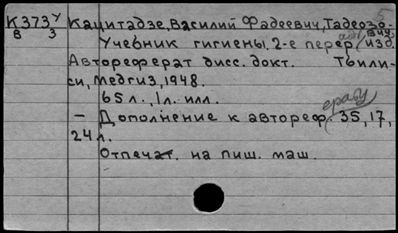 К373 у Кацитадзе, Василий Фадеевич, Тадеозо-
В 3 вич.
Учебник гигиены, 2-е перер. изд.
Автореферат дисс. докт. Тбили-
си, Медгиз, 1948.
65 л., 1 л. илл.
— Дополнение к автореф. 35, 17,
24 л.
Отпечат. на пиш. маш.